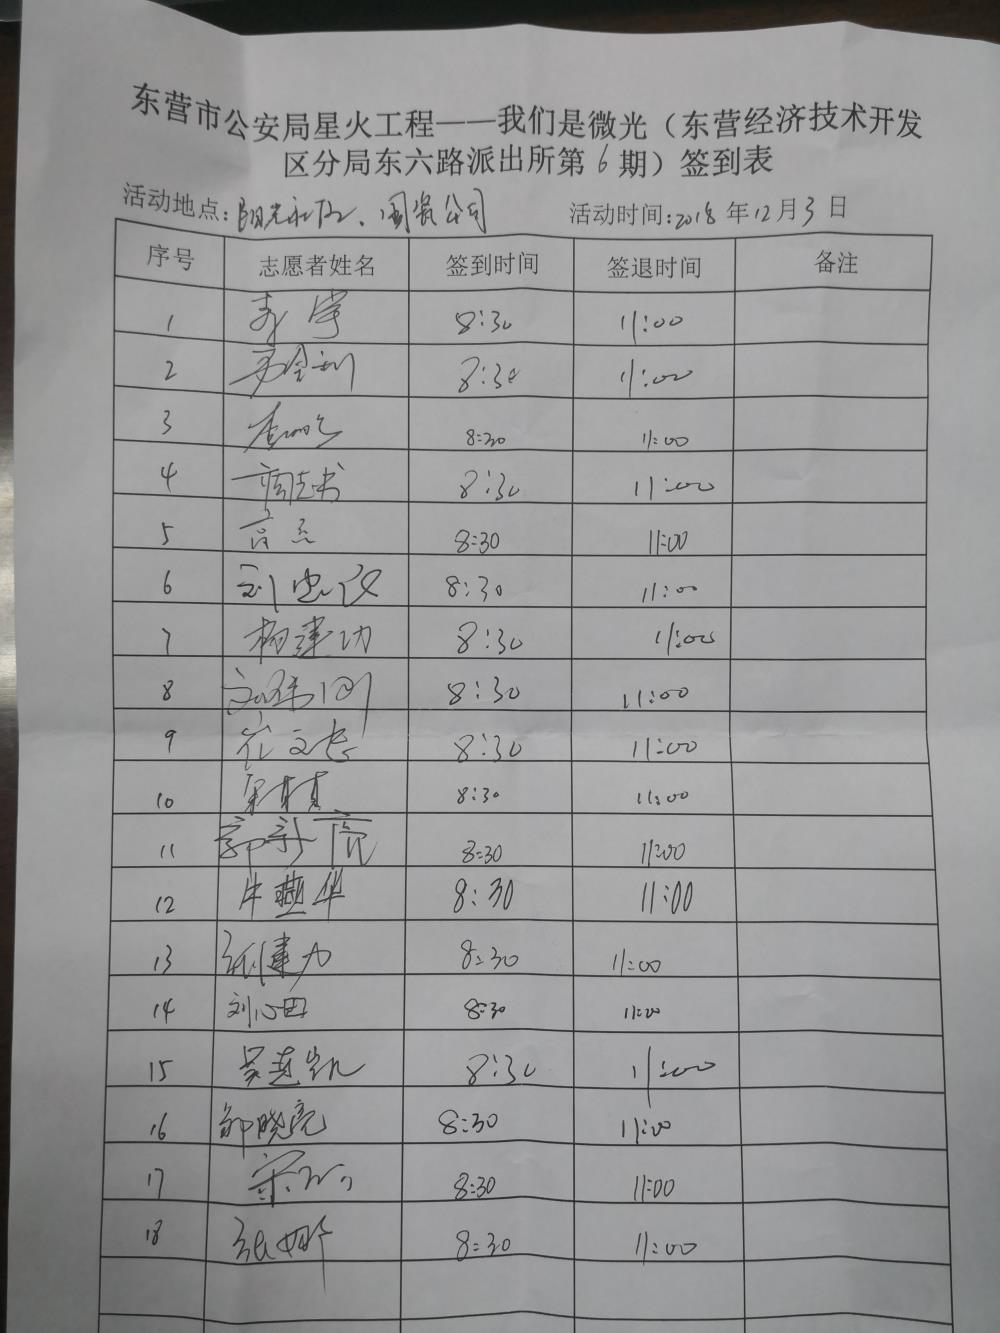 东营市公安局星火工程——我们是微光（东营经济技术开发
区分局东六路派出所第6期）签到表
活动地点：阳光社区、国资公司 活动时间：2018年12月3日
序号 志愿者姓名 签到时间 签退时间 备注
1 8:30 11:00
2 8:30 11:00
3 8:30 11:00
4 8:30 11:00
5 8:30 11:00
6 8:30 11:00
7 杨建功 8:30 11:00
8 8:30 11:00
9 崔文忠 8:30 11:00
10 8:30 11:00
11 郭新亮 8:30 11:00
12 牛燕华 8:30 11:00
13 张建力 8:30 11:00
14 刘心田 8:30 11:00
15 吴莲凯 8:30 11:00
16 邹晓亮 8:30 11:00
17 8:30 11:00
18 张娜 8:30 11:00